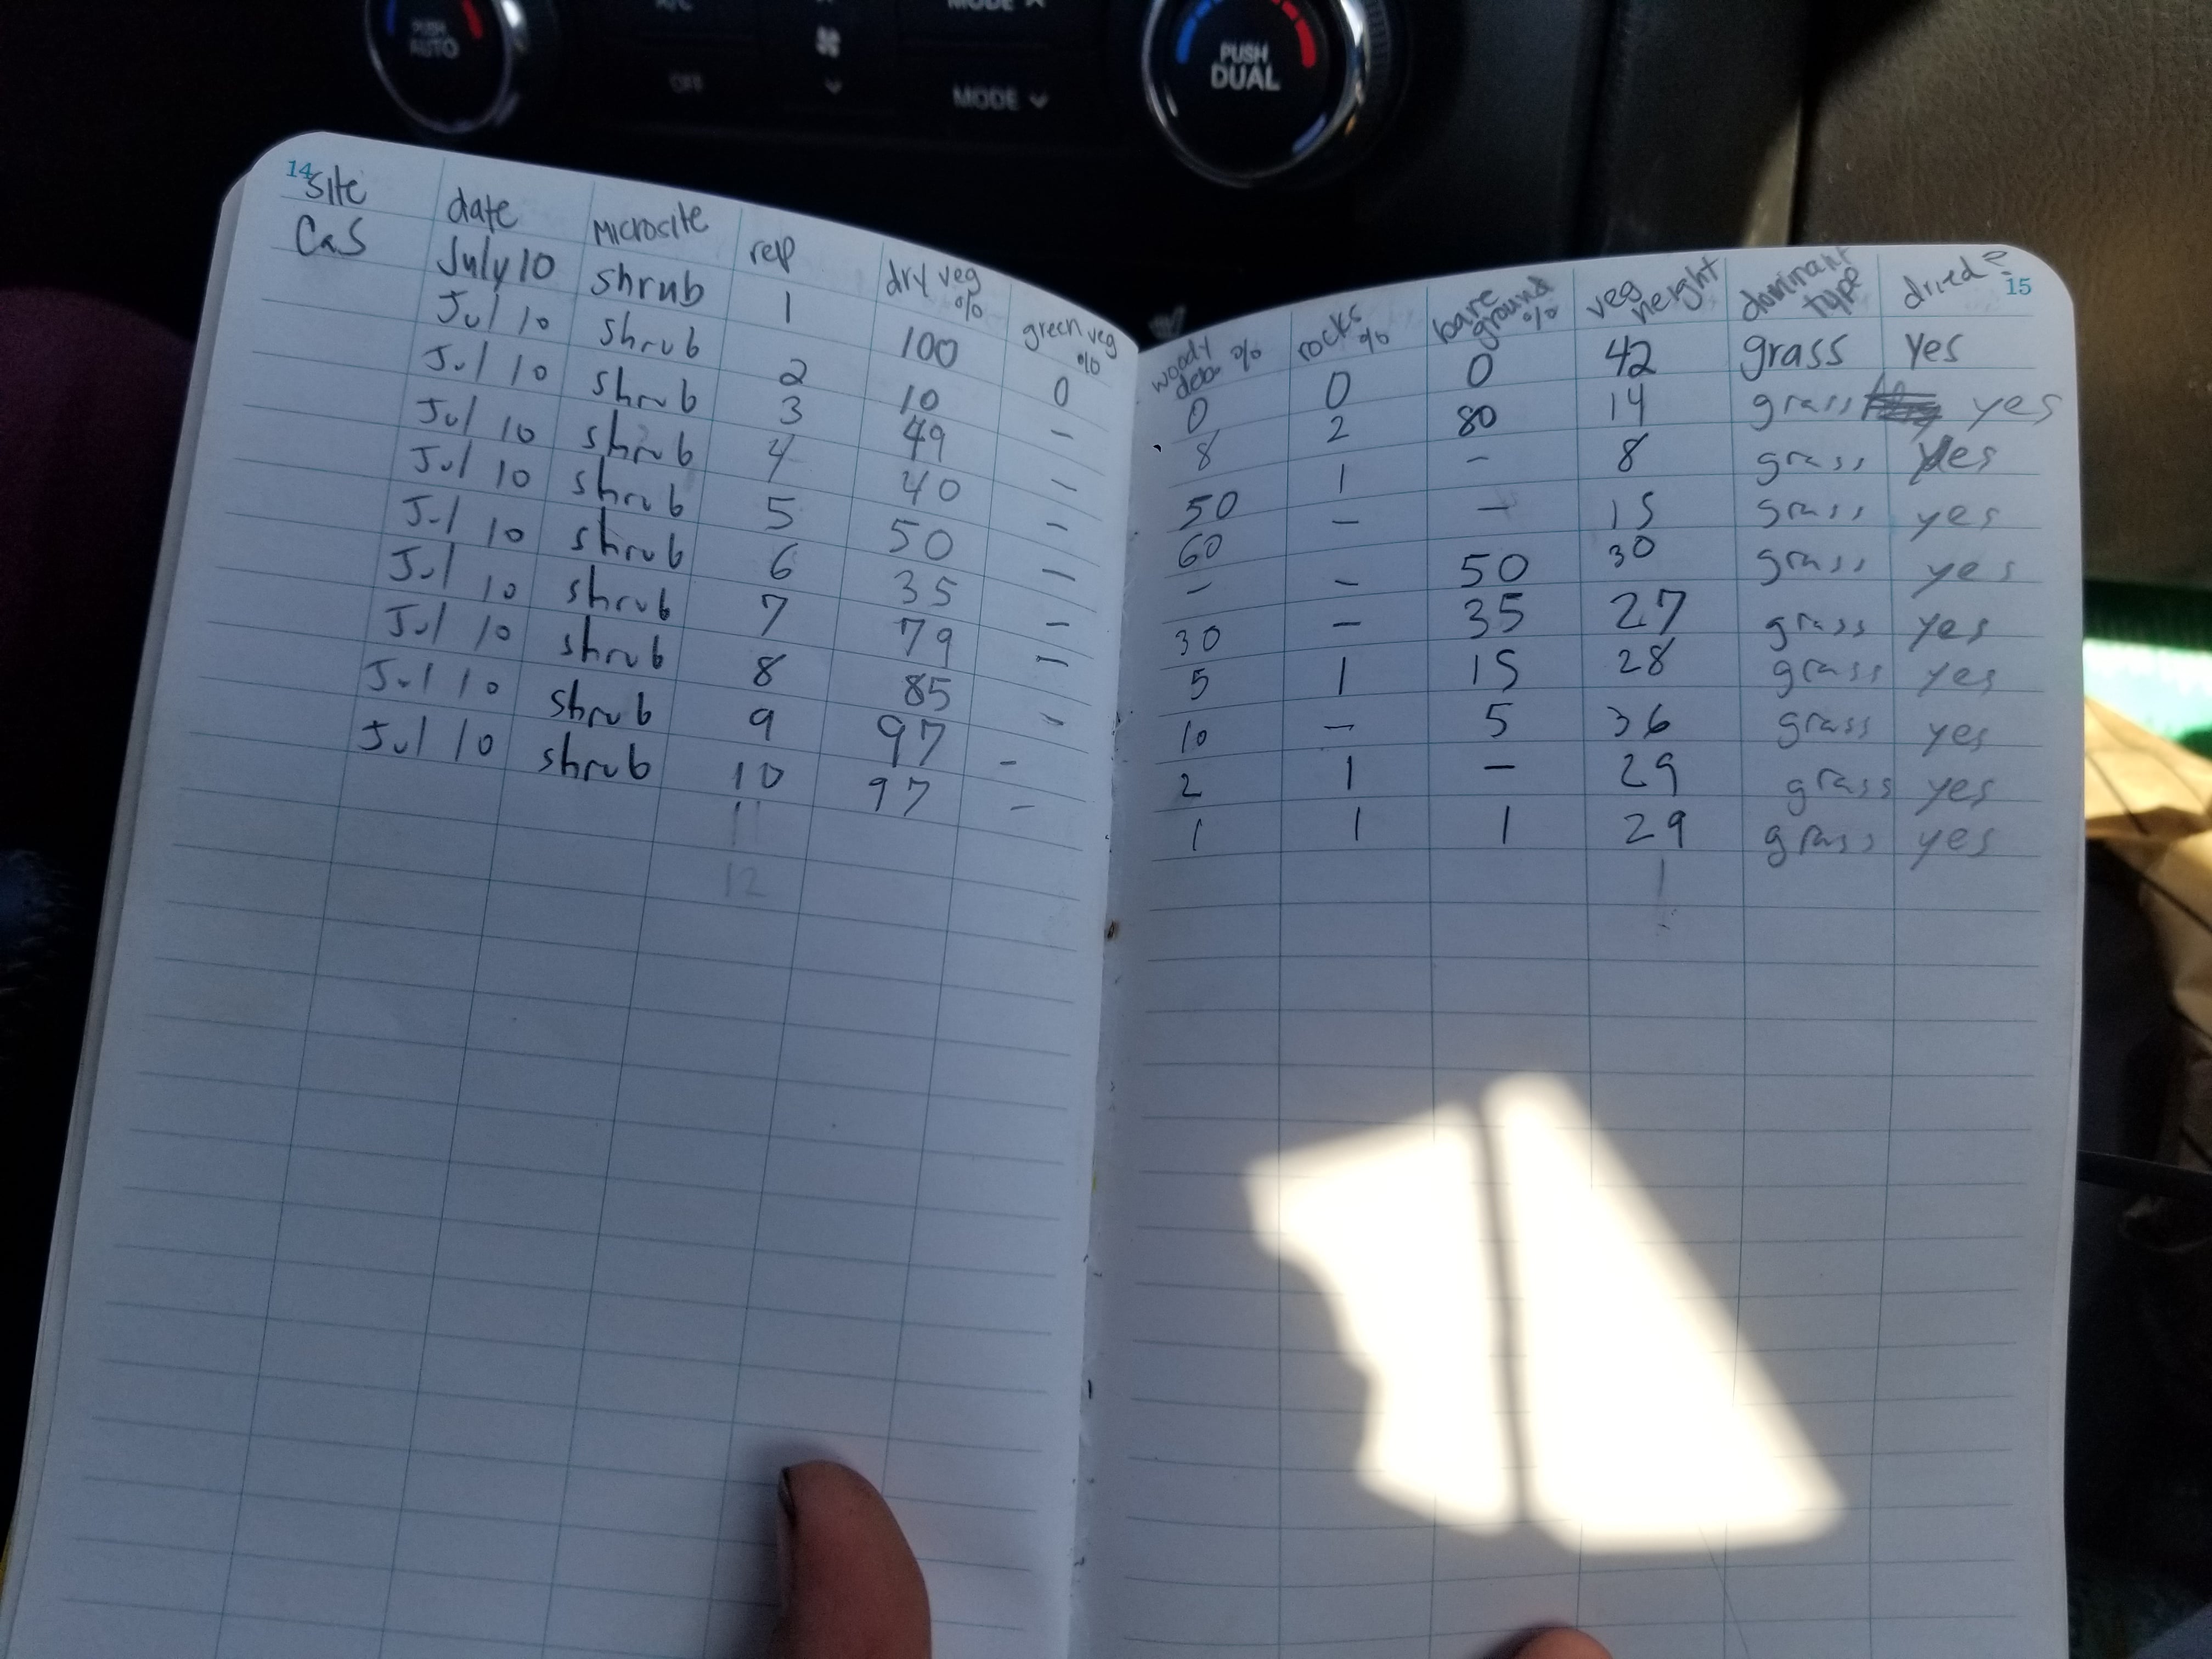 PUSH
AUTO
A/C
OFF
MODE
MODE
PUSH
DUAL
14
site date Microsite rep dry veg % green veg %
CaS July 10 shrub 1 100 0
Jul 10 shrub 2 10 -
Jul 10 shrub 3 49 -
Jul 10 shrub 4 40 -
Jul 10 shrub 5 50 -
Jul 10 shrub 6 35 -
Jul 10 shrub 7 79 -
Jul 10 shrub 8 85 -
Jul 10 shrub 9 97 -
Jul 10 shrub 10 97 -
11
12
15
woody deb % rocks % bare ground % veg height dominant type dried?
0 0 0 42 grass yes
8 2 80 14 grass yes
50 1 - 8 grass yes
60 - - 15 grass yes
- - 50 30 grass yes
30 - 35 27 grass yes
5 1 15 28 grass yes
10 - 5 36 grass yes
2 1 - 29 grass yes
1 1 1 29 grass yes